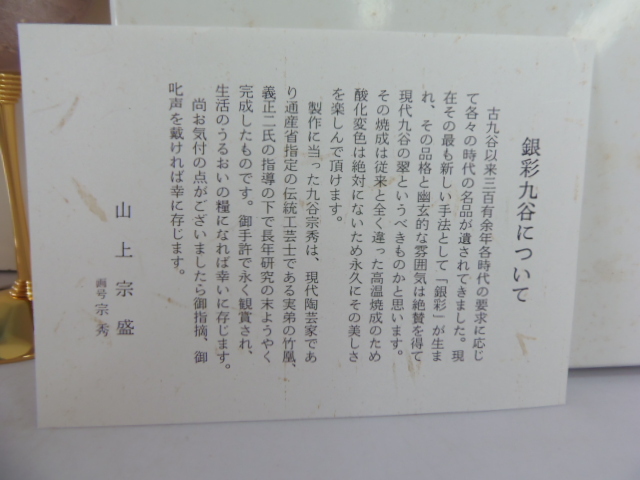 銀彩九谷について
古九谷以来三百有余年各時代の要求に応じ
て各々の時代の名品が遺されてきました。現
在その最も新しい手法として「銀彩」が生ま
れ、その品格と幽玄的な雰囲気は絶賛を得て
現代九谷の翠というべきものかと思います。
その焼成は従来と全く違った高温焼成のため
酸化変色は絶対にないため永久にその美しさ
を楽しんで頂けます。
製作に当った九谷宗秀は、現代陶芸家であ
り通産省指定の伝統工芸士である実弟の竹凰、
義正二氏の指導の下で長年研究の末ようやく
完成したものです。御手許で永く観賞され、
生活のうるおいの糧になれば幸いに存じます。
尚お気付の点がございましたら御指摘、御
叱声を戴ければ幸に存じます。
山上宗盛
画号宗秀